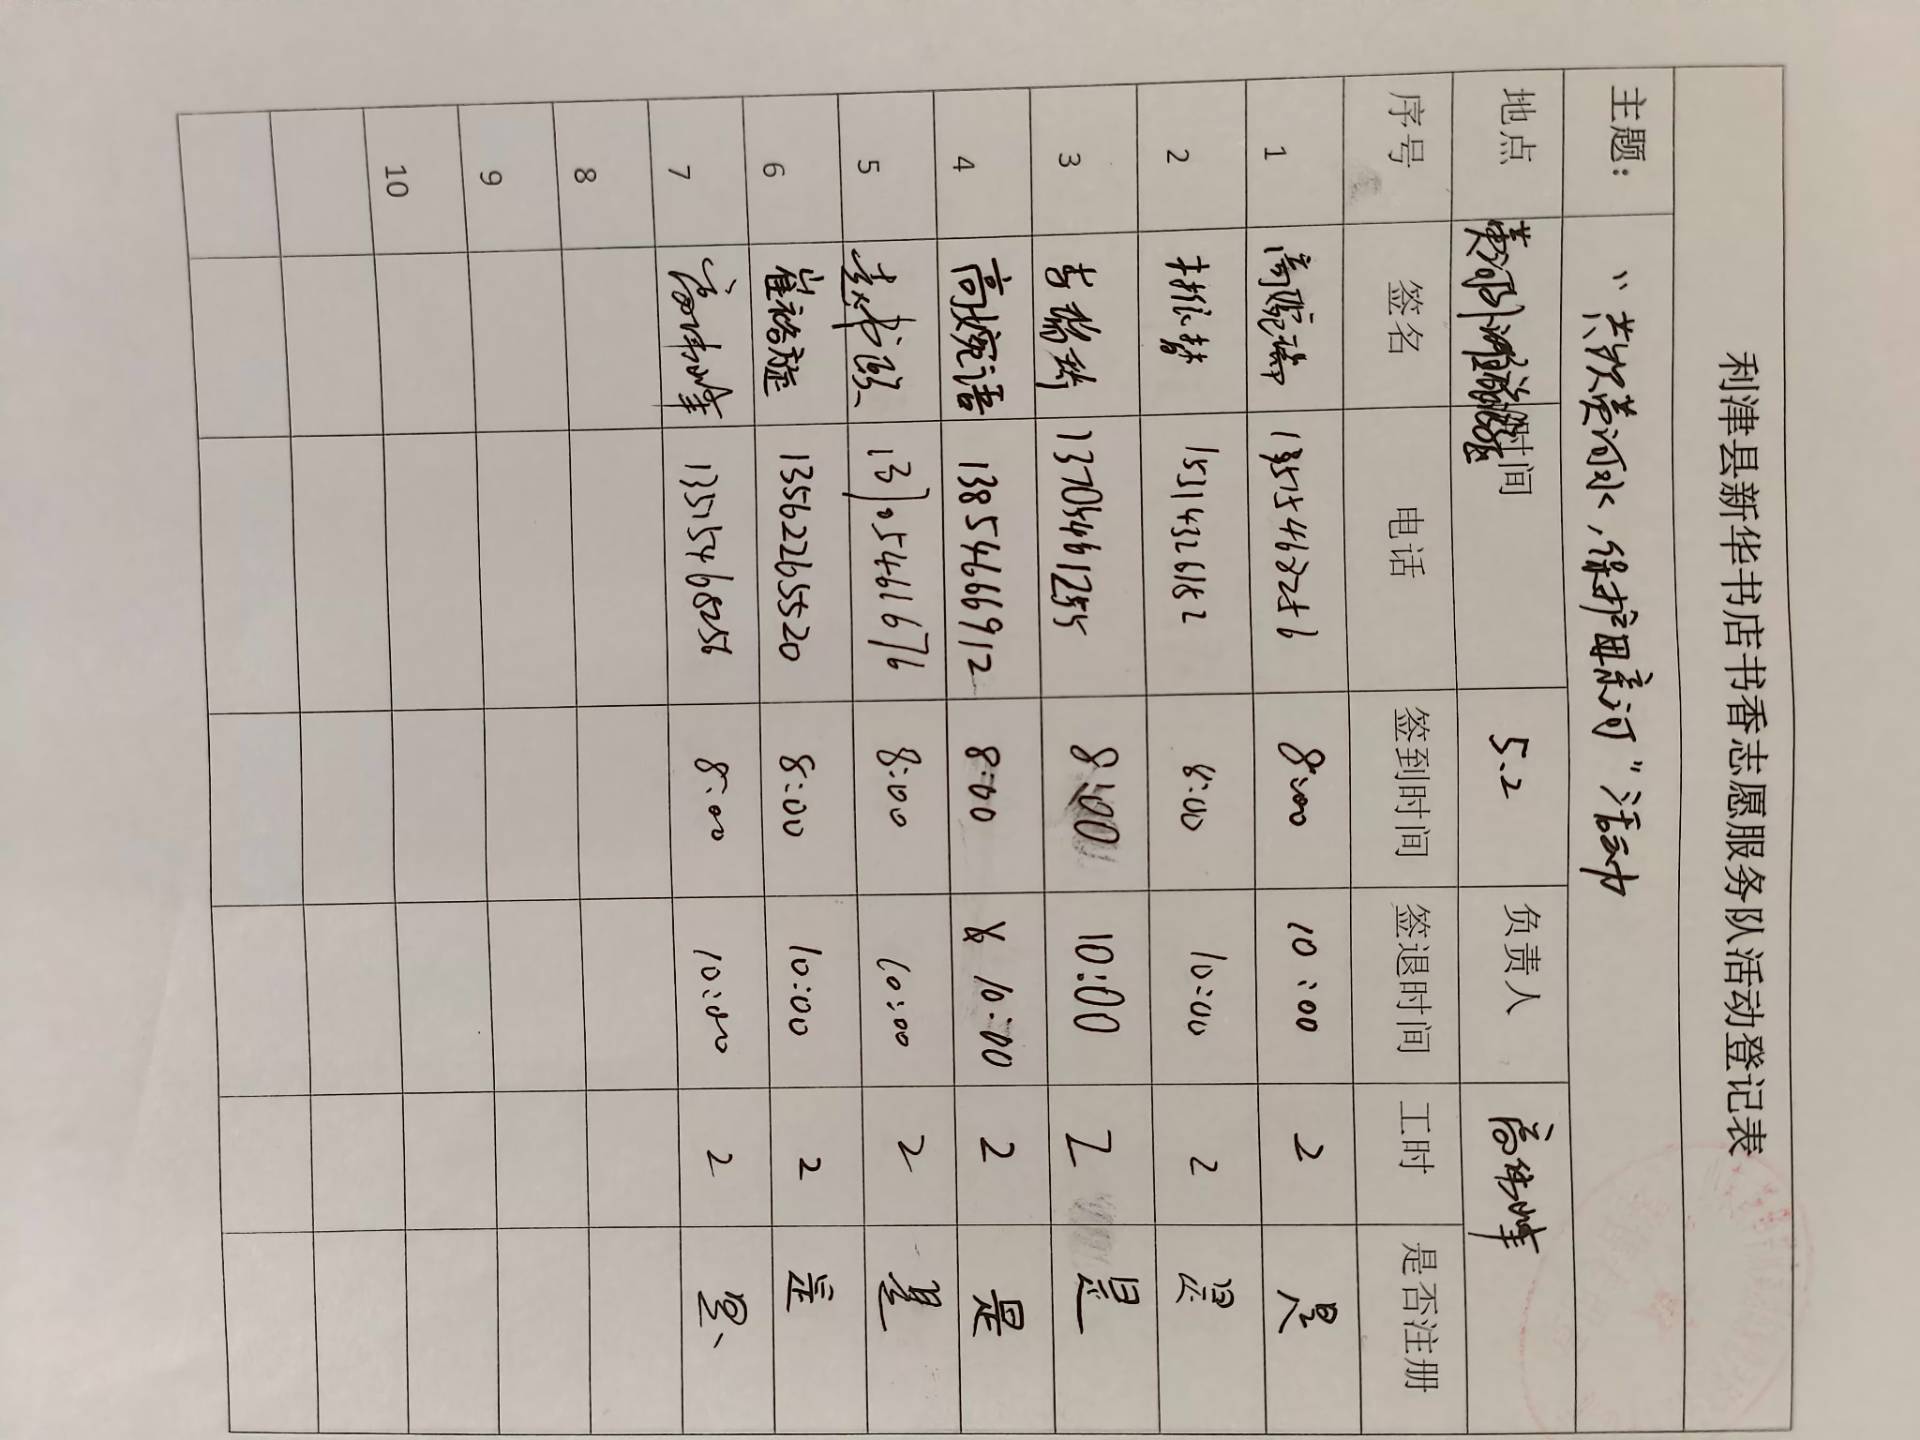 利津县新华书店书香志愿服务队活动登记表
主题: “共饮黄河水,保护母亲河”活动
地点 时间 5.2 负责人 高伟峰
序号 签名 电话 签到时间 签退时间 工时 是否注册
1 8:00 10:00 2 是
2 15314326182 8:00 10:00 2 是
3 13705461255 8:00 10:00 2 是
4 高婉语 13854666912 8:00 10:00 2 是
5 13105461676 8:00 10:00 2 是
6 崔裕旋 13562265520 8:00 10:00 2 是
7 高伟峰 13515468256 8:00 10:00 2 是
8
9
10